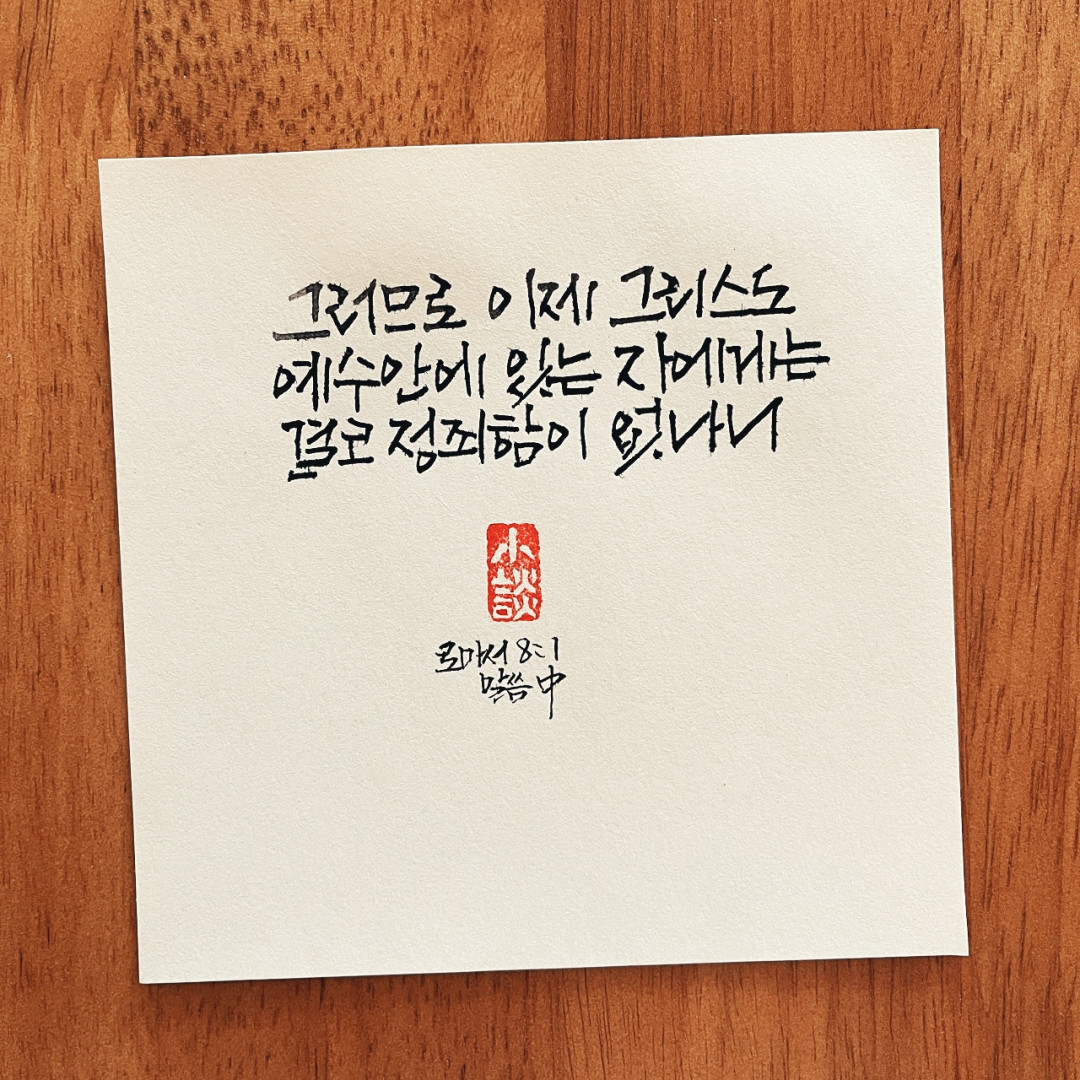 그러므로 이제 그리스도
예수안에 있는 자에게는
결코 정죄함이 없나니
小談
로마서 8:1
말씀 中